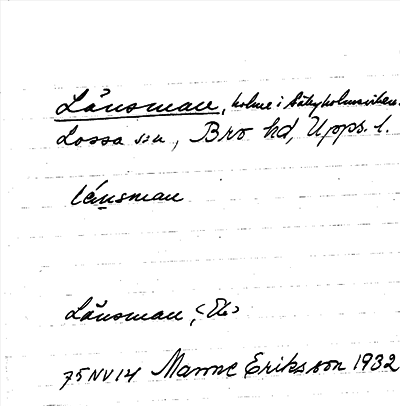 Länsman, holme i Sätuholmsviken.
Lossa sn, Bro hd, Upps. l.
länsman
Länsman, <Ek>
75NV14 Manne Eriksson 1932